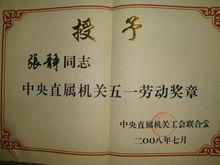 授予
張静同志
中央直属机关五一劳动奖章
中央直属机关工会联合会
二〇〇八年七月